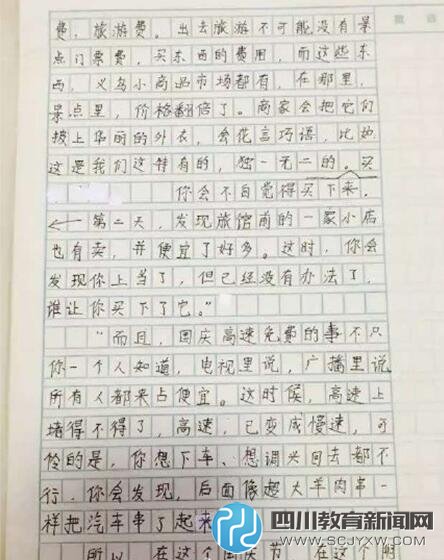 费，旅游费。出去旅游不可能没有景
点门票费，买东西的费用，而这些东
西，义乌小商品市场都有，在那里，
景点里，价格翻倍了。商家会把它们
披上华丽的外衣，会花言巧语，比如
这是我们这特有的，独一无二的。买
你会不自觉得买下来，
第二天，发现旅馆前的一家小店
也有卖，并便宜了好多。这时，你会
发现你上当了，但已经没有办法了，
谁让你买下了它。"
"而且，国庆高速免费的事不只
你一个人知道，电视里说，广播里说
所有人都来占便宜。这时候，高速上
堵得不得了，高速，已变成慢速，可
怜的是，你想下车、想调头回去都不
行，你会发现，后面像超大羊肉串一
样把汽车串了起来
所以，在这个国庆节，在这个时
四川教育新闻网
WWW.SCJYXW.COM